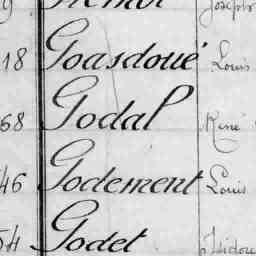 18 Goasdoué Louis
68 Godal René
46 Godement Louis
54 Godet Isidore